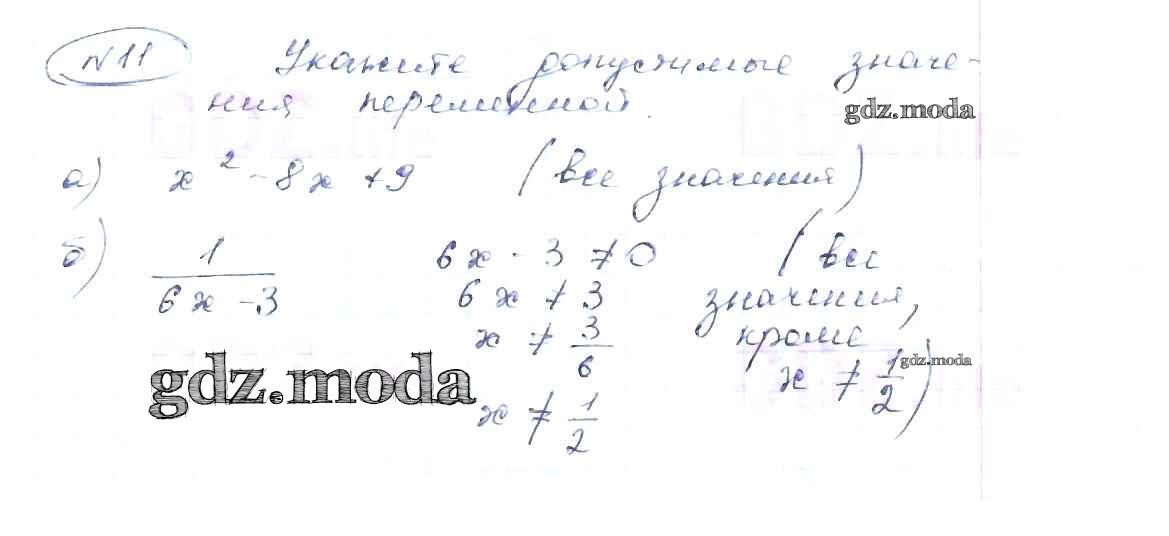 №11 Укажите допустимые значе-
ния переменной.
gdz.moda
а) x² - 8x + 9 (все значения)
б) 1/(6x - 3) 6x - 3 ≠ 0 (все
6x ≠ 3 значения,
x ≠ 3/6 кроме
gdz.moda
x ≠ 1/2)
gdz.moda
x ≠ 1/2